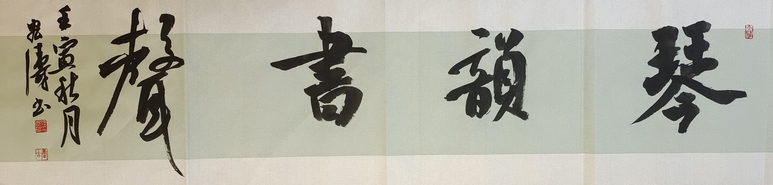 琴韻書聲
壬寅秋月
濤書